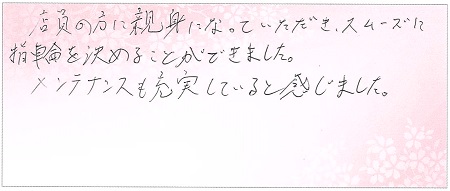 店員の方に親身になっていただき、スムーズに
指輪を決めることができました。
メンテナンスも充実していると感じました。